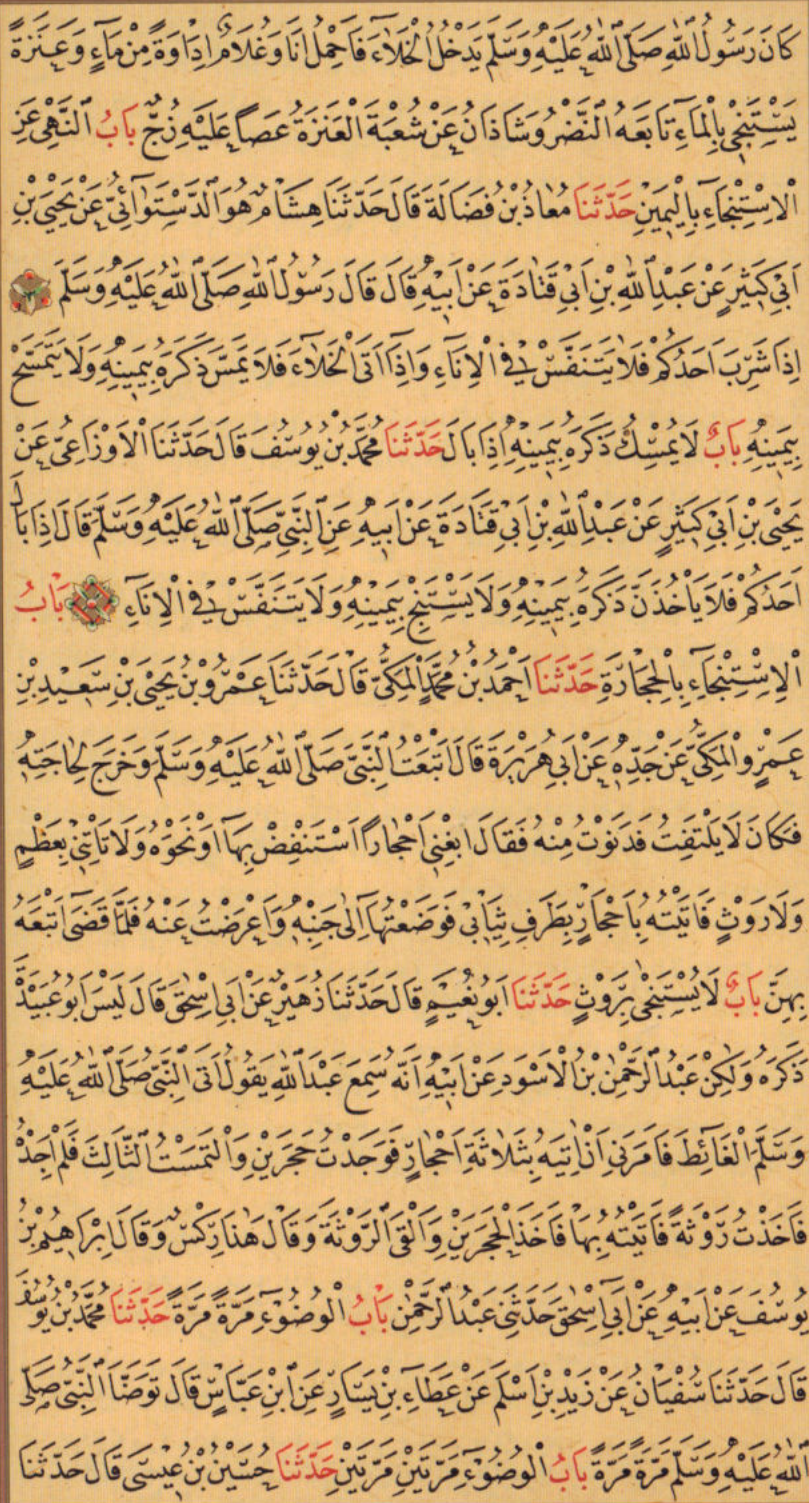 كَانَ رَسُولُ اللّٰهِ صَلَّى اللّٰهُ عَلَيْهِ وَسَلَّمَ يَدْخُلُ الْخَلَاءَ فَاَحْمِلُ اَنَا وَغُلَامٌ اِدَاوَةً مِنْ مَاءٍ وَعَنَزَةً
يَسْتَنْجِى بِالْمَاءِ تَابَعَهُ النَّضْرُ وَشَاذَانُ عَنْ شُعْبَةَ الْعَنَزَةُ عَصًا عَلَيْهِ زُجٌّ بَابُ النَّهْىِ عَنِ
الْاِسْتِنْجَاءِ بِالْيَمِينِ حَدَّثَنَا مُعَاذُ بْنُ فَضَالَةَ قَالَ حَدَّثَنَا هِشَامٌ هُوَ الدَّسْتَوَائِىُّ عَنْ يَحْيَى بْنِ
اَبِى كَثِيرٍ عَنْ عَبْدِ اللّٰهِ بْنِ اَبِى قَتَادَةَ عَنْ اَبِيهِ قَالَ قَالَ رَسُولُ اللّٰهِ صَلَّى اللّٰهُ عَلَيْهِ وَسَلَّمَ
اِذَا شَرِبَ اَحَدُكُمْ فَلَا يَتَنَفَّسْ فِى الْاِنَاءِ وَاِذَا اَتَى الْخَلَاءَ فَلَا يَمَسَّ ذَكَرَهُ بِيَمِينِهِ وَلَا يَتَمَسَّحْ
بِيَمِينِهِ بَابٌ لَا يُمْسِكُ ذَكَرَهُ بِيَمِينِهِ اِذَا بَالَ حَدَّثَنَا مُحَمَّدُ بْنُ يُوسُفَ قَالَ حَدَّثَنَا الْاَوْزَاعِىُّ عَنْ
يَحْيَى بْنِ اَبِى كَثِيرٍ عَنْ عَبْدِ اللّٰهِ بْنِ اَبِى قَتَادَةَ عَنْ اَبِيهِ عَنِ النَّبِىِّ صَلَّى اللّٰهُ عَلَيْهِ وَسَلَّمَ قَالَ اِذَا بَالَ
اَحَدُكُمْ فَلَا يَأْخُذَنَّ ذَكَرَهُ بِيَمِينِهِ وَلَا يَسْتَنْجِ بِيَمِينِهِ وَلَا يَتَنَفَّسْ فِى الْاِنَاءِ بَابُ
الْاِسْتِنْجَاءِ بِالْحِجَارَةِ حَدَّثَنَا اَحْمَدُ بْنُ مُحَمَّدٍ الْمَكِّىُّ قَالَ حَدَّثَنَا عَمْرُو بْنُ يَحْيَى بْنِ سَعِيدِ بْنِ
عَمْرٍو الْمَكِّىُّ عَنْ جَدِّهِ عَنْ اَبِى هُرَيْرَةَ قَالَ اتَّبَعْتُ النَّبِىَّ صَلَّى اللّٰهُ عَلَيْهِ وَسَلَّمَ وَخَرَجَ لِحَاجَتِهِ
فَكَانَ لَا يَلْتَفِتُ فَدَنَوْتُ مِنْهُ فَقَالَ ابْغِنِى اَحْجَارًا اَسْتَنْفِضْ بِهَا اَوْ نَحْوَهُ وَلَا تَأْتِنِى بِعَظْمٍ
وَلَا رَوْثٍ فَاَتَيْتُهُ بِاَحْجَارٍ بِطَرَفِ ثِيَابِى فَوَضَعْتُهَا اِلَى جَنْبِهِ وَاَعْرَضْتُ عَنْهُ فَلَمَّا قَضَى اَتْبَعَهُ
بِهِنَّ بَابٌ لَا يُسْتَنْجَى بِرَوْثٍ حَدَّثَنَا اَبُو نُعَيْمٍ قَالَ حَدَّثَنَا زُهَيْرٌ عَنْ اَبِى اِسْحٰقَ قَالَ لَيْسَ اَبُو عُبَيْدَةَ
ذَكَرَهُ وَلٰكِنْ عَبْدُ الرَّحْمٰنِ بْنُ الْاَسْوَدِ عَنْ اَبِيهِ اَنَّهُ سَمِعَ عَبْدَ اللّٰهِ يَقُولُ اَتَى النَّبِىُّ صَلَّى اللّٰهُ عَلَيْهِ
وَسَلَّمَ الْغَائِطَ فَاَمَرَنِى اَنْ اٰتِيَهُ بِثَلَاثَةِ اَحْجَارٍ فَوَجَدْتُ حَجَرَيْنِ وَالْتَمَسْتُ الثَّالِثَ فَلَمْ اَجِدْهُ
فَاَخَذْتُ رَوْثَةً فَاَتَيْتُهُ بِهَا فَاَخَذَ الْحَجَرَيْنِ وَاَلْقَى الرَّوْثَةَ وَقَالَ هٰذَا رِكْسٌ وَقَالَ اِبْرَاهِيمُ بْنُ
يُوسُفَ عَنْ اَبِيهِ عَنْ اَبِى اِسْحٰقَ حَدَّثَنِى عَبْدُ الرَّحْمٰنِ بَابُ الْوُضُوءِ مَرَّةً مَرَّةً حَدَّثَنَا مُحَمَّدُ بْنُ يُوسُفَ
قَالَ حَدَّثَنَا سُفْيَانُ عَنْ زَيْدِ بْنِ اَسْلَمَ عَنْ عَطَاءِ بْنِ يَسَارٍ عَنِ ابْنِ عَبَّاسٍ قَالَ تَوَضَّأَ النَّبِىُّ صَلَّى
اللّٰهُ عَلَيْهِ وَسَلَّمَ مَرَّةً مَرَّةً بَابُ الْوُضُوءِ مَرَّتَيْنِ مَرَّتَيْنِ حَدَّثَنَا حُسَيْنُ بْنُ عِيسَى قَالَ حَدَّثَنَا